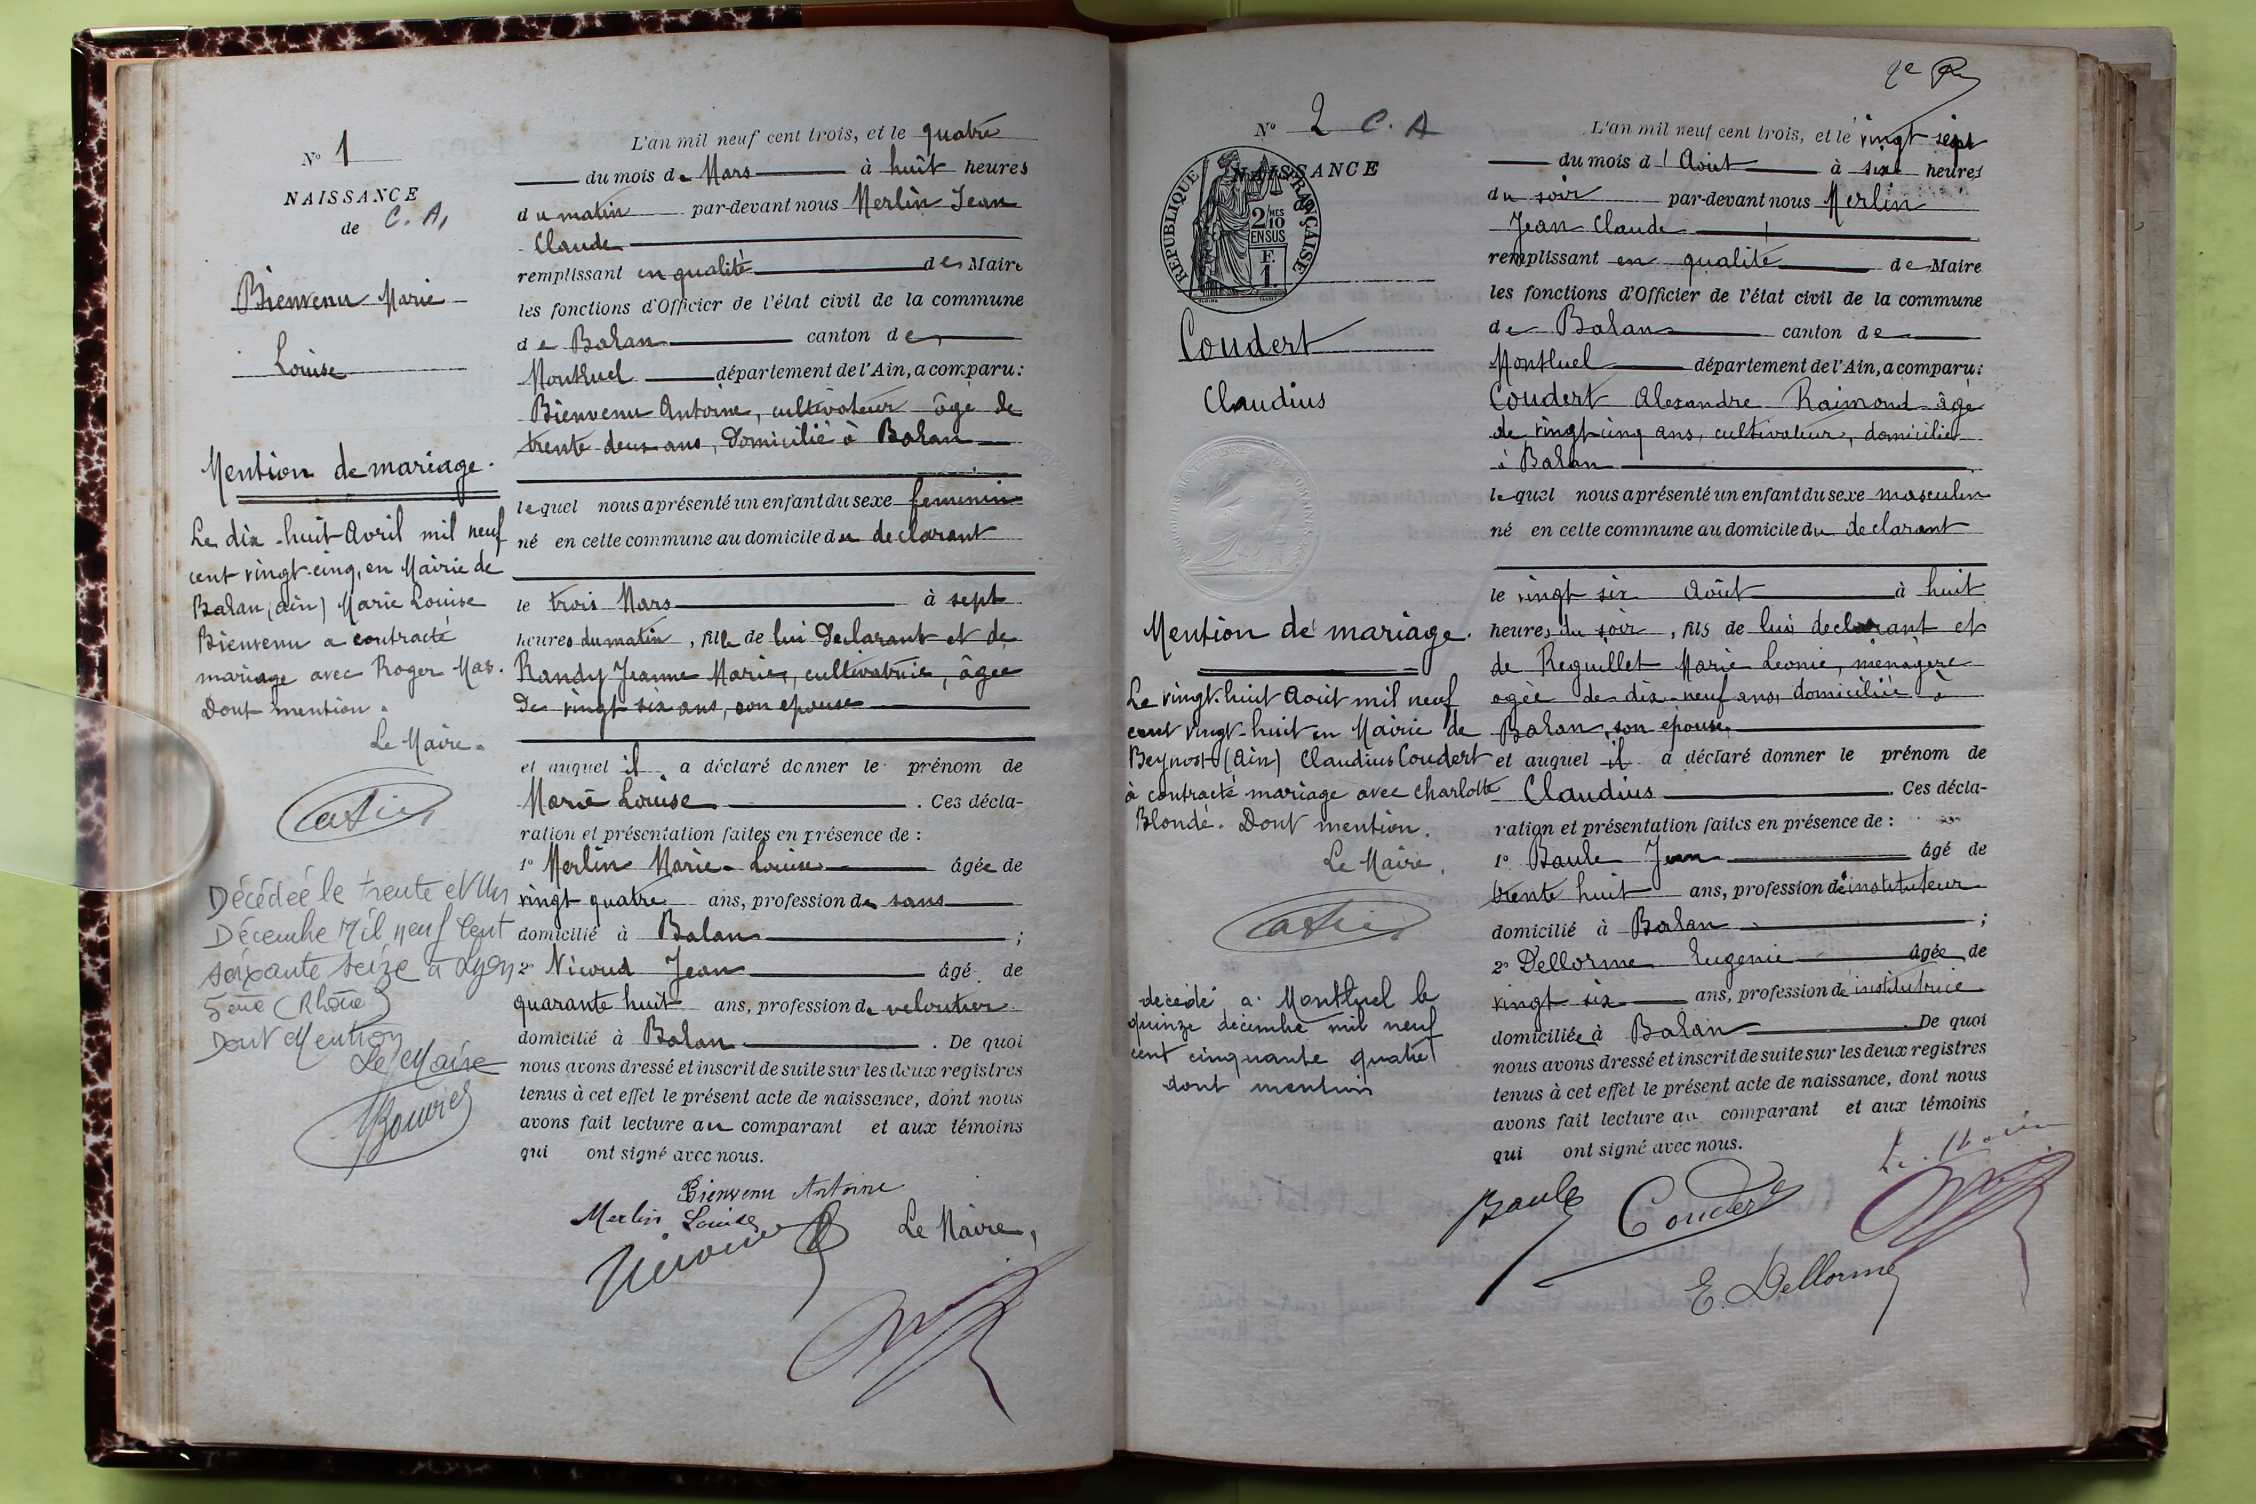 N° 1
NAISSANCE
de C. A.
Bienvenu Marie
Louise
Mention de mariage.
Le dix-huit Avril mil neuf
cent vingt-cinq, en Mairie de
Balan (Ain) Marie Louise
Bienvenu a contracté
mariage avec Roger Mas.
Dont mention.
Le Maire.
Décédée le trente et Un
Décembre Mil neuf Cent
soixante seize à Lyon
5ème (Rhône)
Dont Mention
Le Maire
Bouvier
L'an mil neuf cent trois, et le quatre
du mois de Mars à huit heures
du matin par-devant nous Merlin Jean
Claude
remplissant en qualité de Maire
les fonctions d'Officier de l'état civil de la commune
de Balan canton de
Montluel département de l'Ain, a comparu:
Bienvenu Antoine, cultivateur âgé de
trente deux ans, domicilié à Balan
lequel nous a présenté un enfant du sexe feminin
né en cette commune au domicile du declarant
le trois Mars à sept
heures du matin, fille de lui declarant et de
Randy Jeanne Marie, cultivatrice, âgée
de vingt six ans, son epouse
et auquel il a déclaré donner le prénom de
Marie Louise. Ces décla-
ration et présentation faites en présence de :
1° Merlin Marie-Louise âgée de
vingt quatre ans, profession de sans
domicilié à Balan ;
2° Nicoud Jean âgé de
quarante huit ans, profession de veloutier
domicilié à Balan. De quoi
nous avons dressé et inscrit de suite sur les deux registres
tenus à cet effet le présent acte de naissance, dont nous
avons fait lecture au comparant et aux témoins
qui ont signé avec nous.
Bienvenu Antoine
Merlin Louise
Nicoud
Le Maire,
N° 2 C. A
NAISSANCE
REPUBLIQUE FRANÇAISE
2 MES
10
EN SUS
F.
1
Coudert
Claudius
Mention de mariage.
Le vingt-huit Aout mil neuf
cent vingt-huit en Mairie de
Beynost (Ain) Claudius Coudert
à contracté mariage avec Charlotte
Blondé. Dont mention.
Le Maire.
décédé a Montluel le
quinze décembre mil neuf
cent cinquante quatre
dont mention
L'an mil neuf cent trois, et le vingt sept
du mois d'Aout à six heures
du soir par-devant nous Merlin
Jean Claude
remplissant en qualité de Maire
les fonctions d'Officier de l'état civil de la commune
de Balan canton de
Montluel département de l'Ain, a comparu:
Coudert Alexandre Raimond âgé
de vingt cinq ans, cultivateur, domicilié
à Balan
lequel nous a présenté un enfant du sexe masculin
né en cette commune au domicile du declarant
le vingt six Août à huit
heures du soir, fils de lui declarant et
de Reguillet Marie Leonie, menagere
agée de dix-neuf ans, domiciliée à
Balan, son epouse,
et auquel il a déclaré donner le prénom de
Claudius. Ces décla-
ration et présentation faites en présence de :
1° Baule Jean âgé de
trente huit ans, profession d'instituteur
domicilié à Balan ;
2° Dellorme Eugenie âgée de
vingt six ans, profession d'institutrice
domiciliée à Balan. De quoi
nous avons dressé et inscrit de suite sur les deux registres
tenus à cet effet le présent acte de naissance, dont nous
avons fait lecture au comparant et aux témoins
qui ont signé avec nous.
Le Maire
Baule Coudert
E. Dellorme